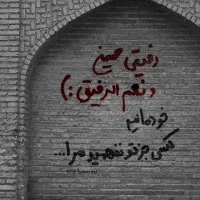 رفیقی حسین
و نعم الرفیق :)
خودمانیم
کسی جز تو نفهمید مرا...